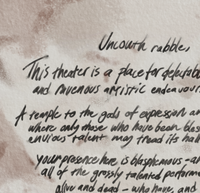 Uncouth rabble,
This theater is a place for delectable
and ravenous artistic endeavour
A temple to the gods of expression an
where only those who have been bles
envious talent may tread its hal
your presence here is blasphemous - an
all of the grossly talented perform
alive and dead - who have, and